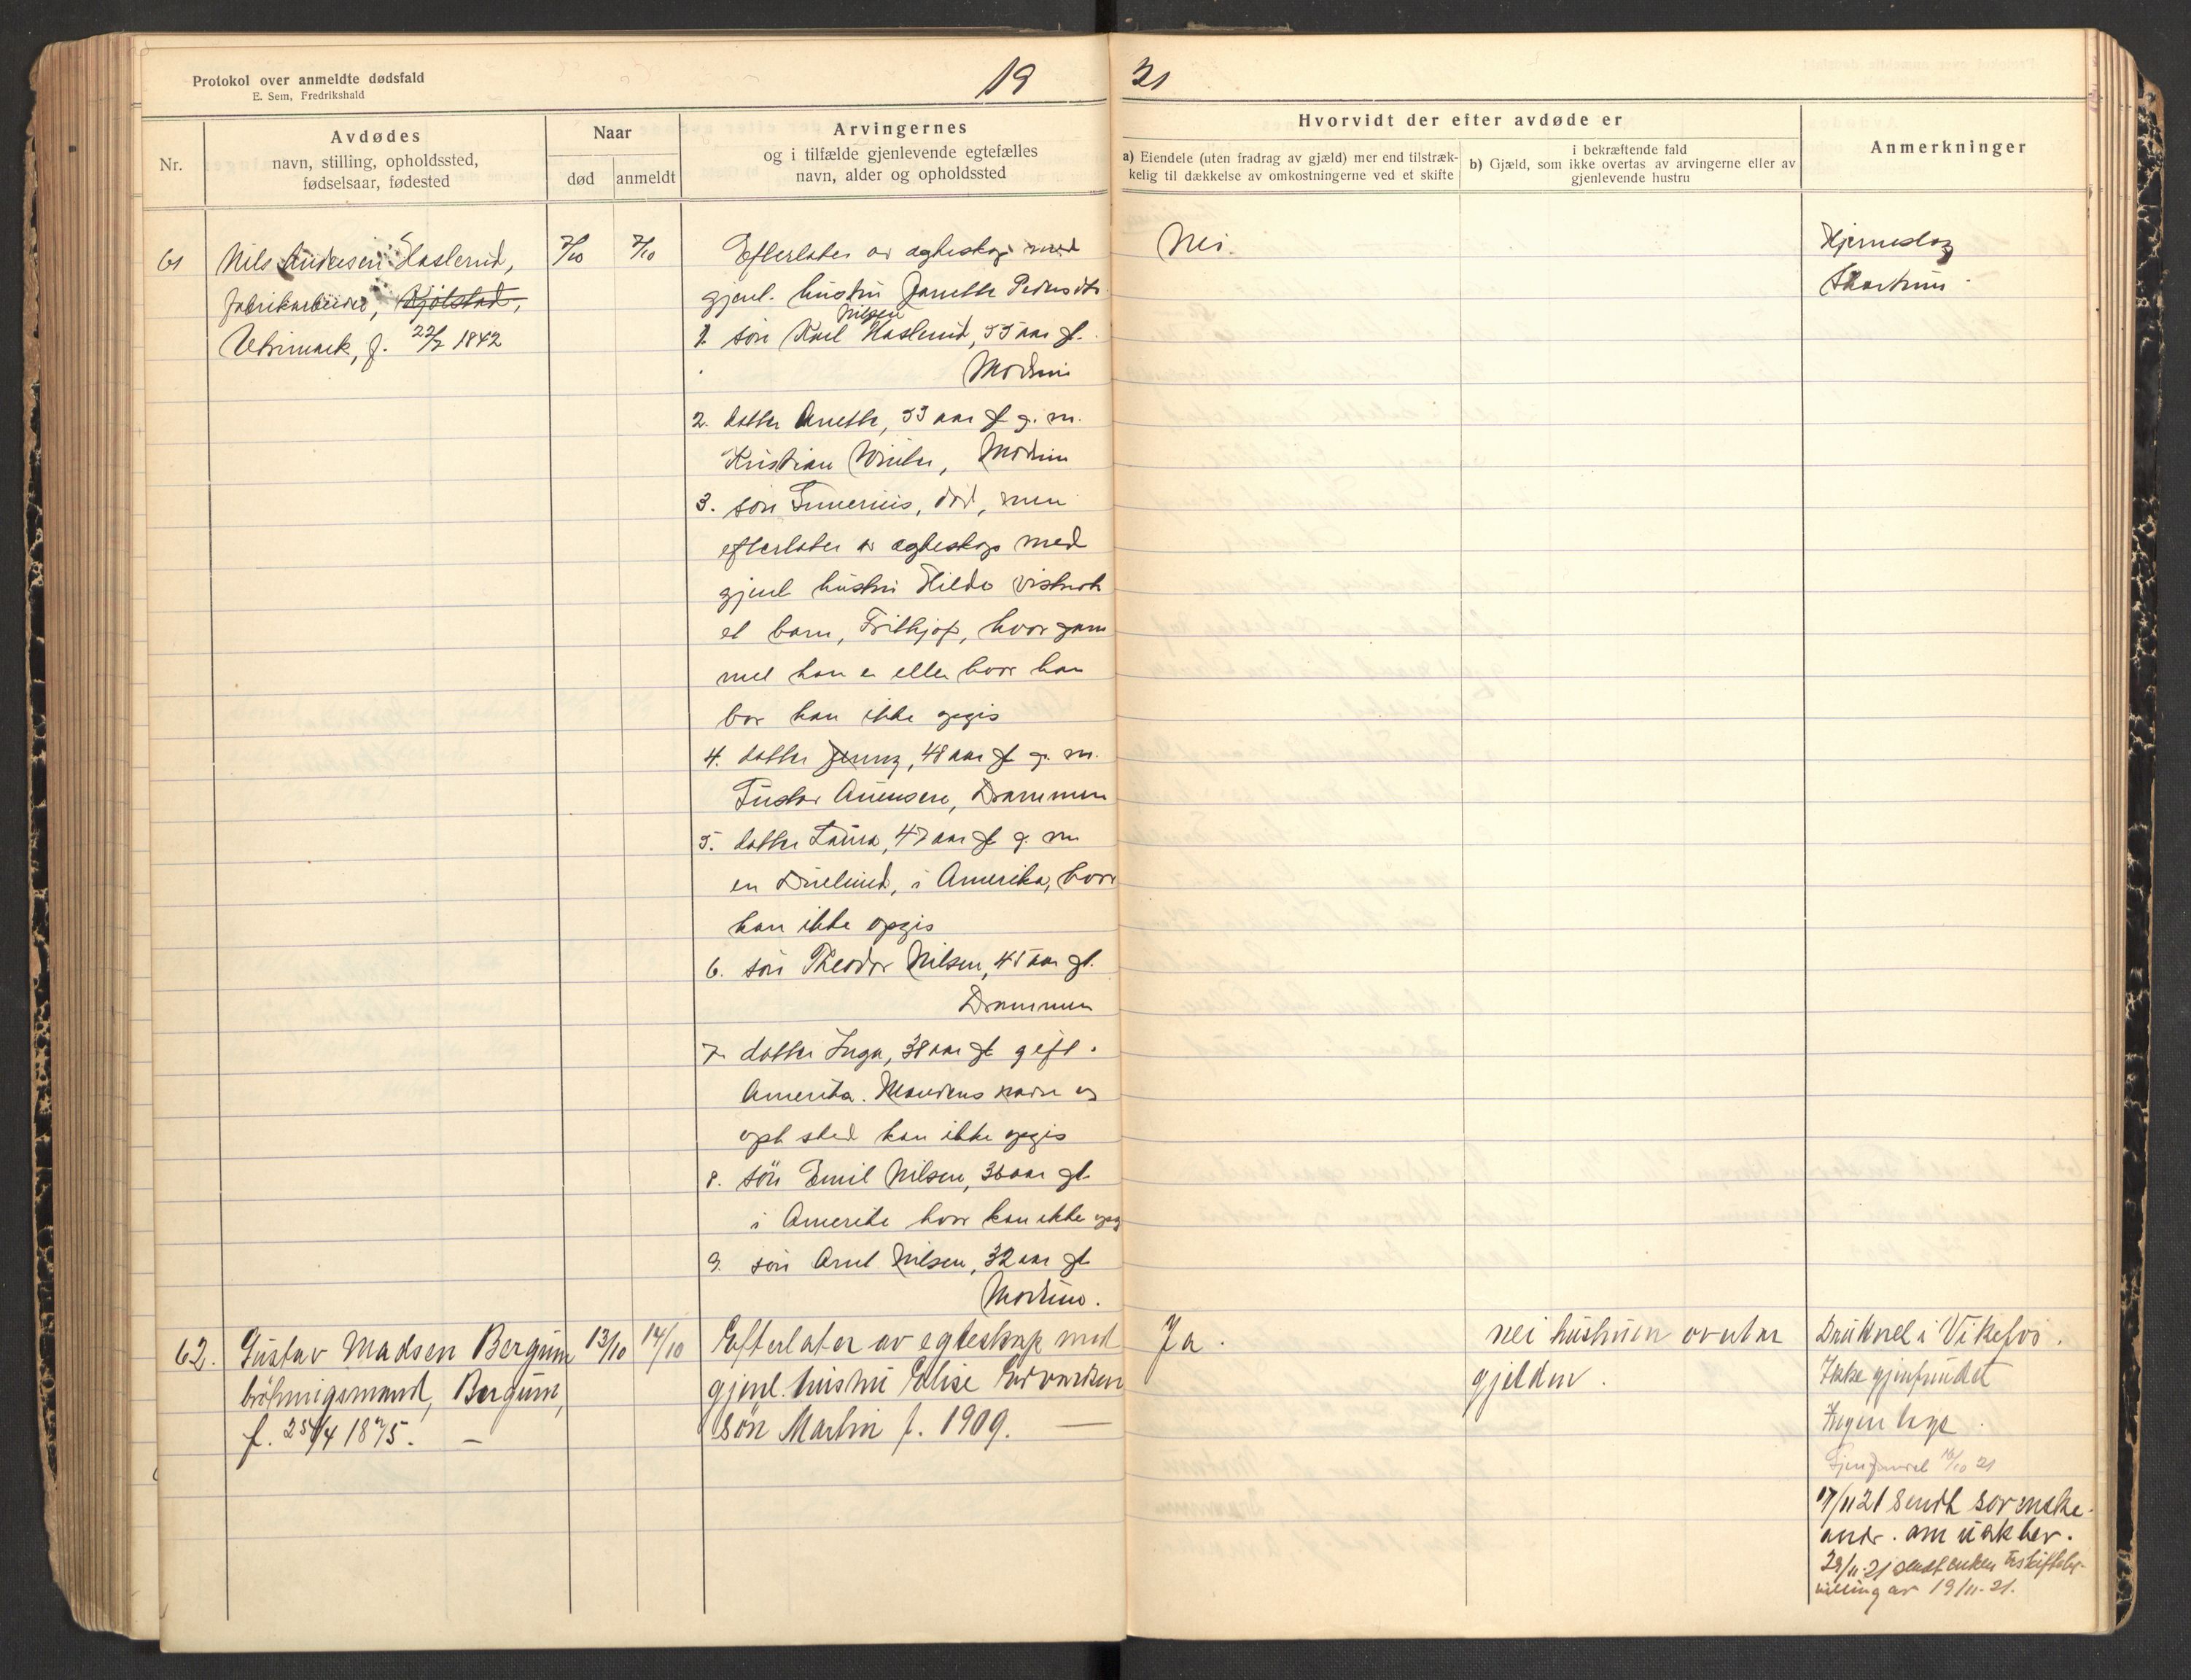 Protokol over anmeldte dødsfald
E. Sem, Fredrikshald
19 21
Nr.
Avdødes
navn, stilling, opholdssted,
fødselsaar, fødested
Naar
død anmeldt
Arvingernes
og i tilfælde gjenlevende egtefælles
navn, alder og opholdssted
Hvorvidt der efter avdøde er
a) Eiendele (uten fradrag av gjæld) mer end tilstræk-
kelig til dækkelse av omkostningerne ved et skifte
i bekræftende fald
b) Gjæld, som ikke overtas av arvingerne eller av
gjenlevende hustru
Anmerkninger
61 Nils Andersen Haslerud,
fabrikarbeider, Kjølstad,
f. 22/2 1842
7/10 7/10
Efterlater av egteskap med
gjenl. hustru Janette Pedersdtr.
Nilsen
1. søn Karl Haslerud, 55 aar gl.
Modum
2. datter Anette, 53 aar gl g. m.
Kristian Winter, Modum
3. søn død, men
efterlater av egteskap med
gjenl hustru Hilda vistnok
et barn, Frithjof, hvor gam
mel han er eller hvor han
bor kan ikke opgis
4. datter Jenny, 48 aar gl g. m.
Gustav Amundsen, Drammen
5. datter Laura, 47 aar gl g. m
en i Amerika, hvor
kan ikke opgis
6. søn Theodor Nilsen, 45 aar gl.
Drammen
7. datter Inga, 38 aar gl gift.
Amerika. Mandens navn og
oph sted kan ikke opgis
8. søn Emil Nilsen, 36 aar gl
i Amerika hvor kan ikke opg
9. søn Arnt Nilsen, 32 aar gl
Modum.
Nei.
Hjerneslag
62. Gustav Madsen Bergum
brøhningsmand, Bergum,
f. 25/4 1875. —
13/10 14/10
Efterlater av egteskap med
gjenl. hustru Elise Edvardsen
Søn Martin f. 1909. —
Ja.
nei hustruen overtar
gjelden.
Druknet i Vikefos.
Ikke gjenfundet
Ingen læge.
Gjenfundet 16/10 21
17/11 21 Sendt sorenskr.
andr. om uskbev.
29/11-21 sendt enken uskiftebe-
villing av 19/11-21.